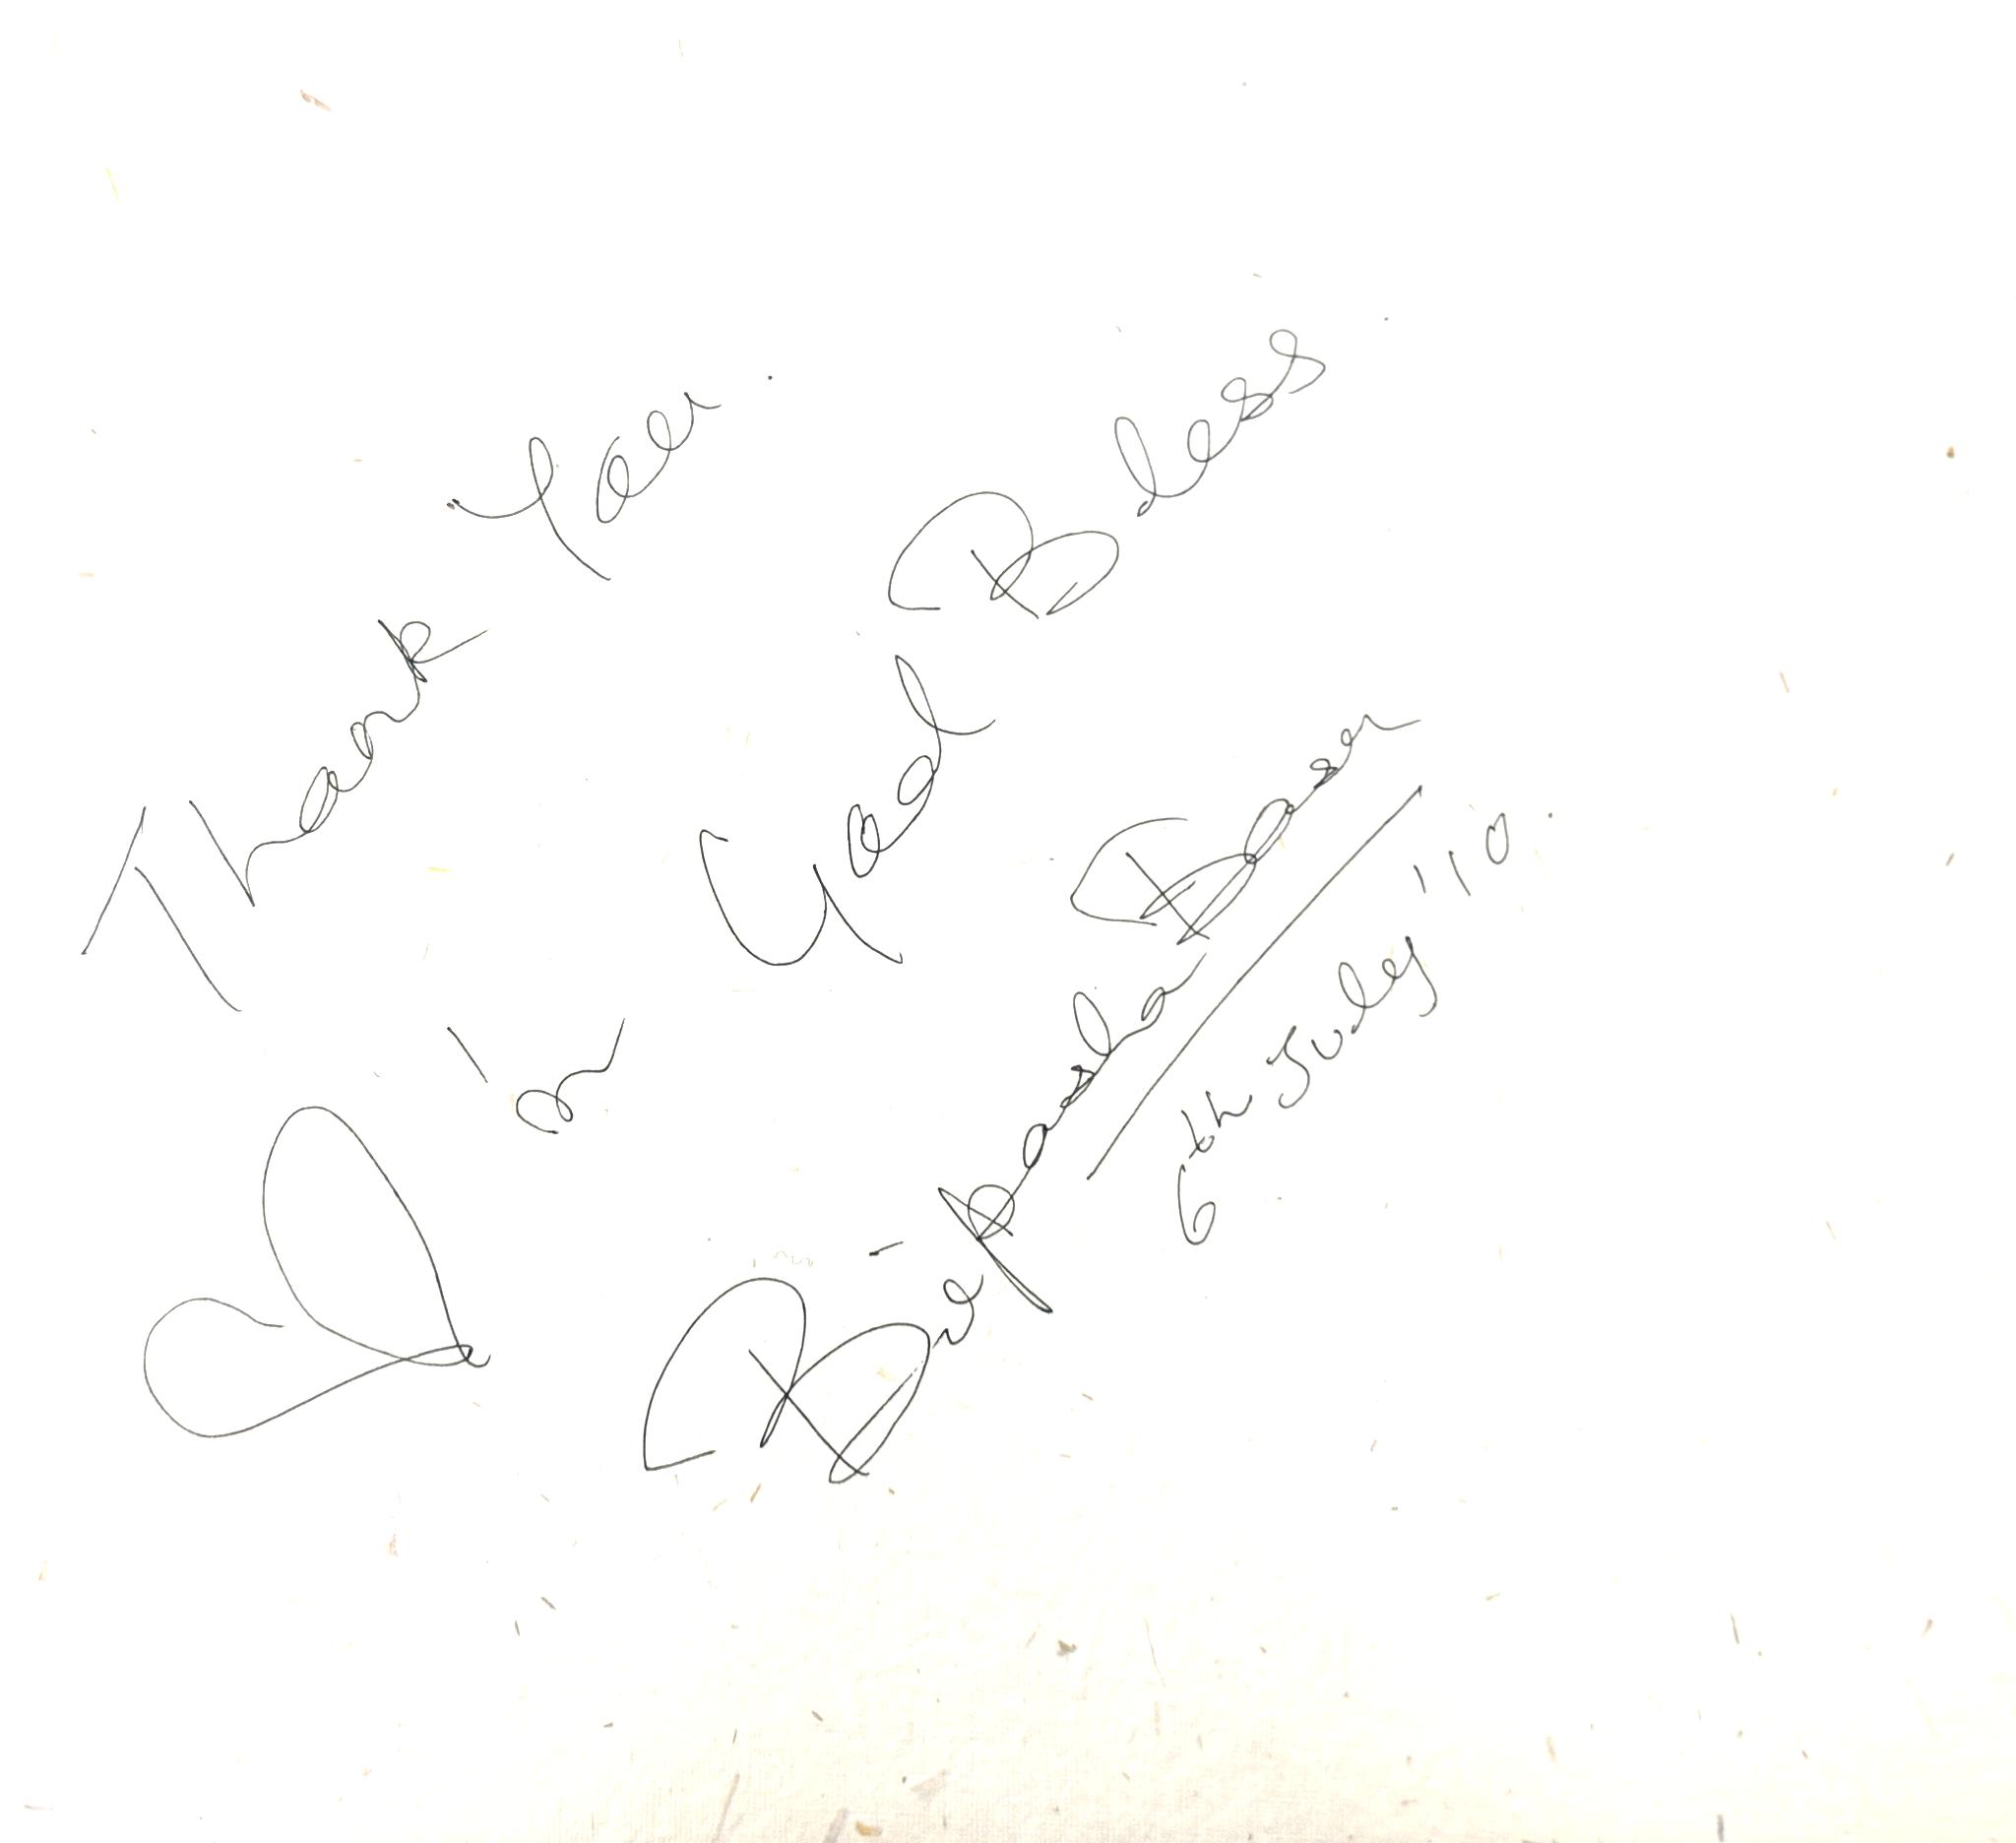 Thank You.
♡ 'n God Bless.
Bipasha Basu
6th July '10.